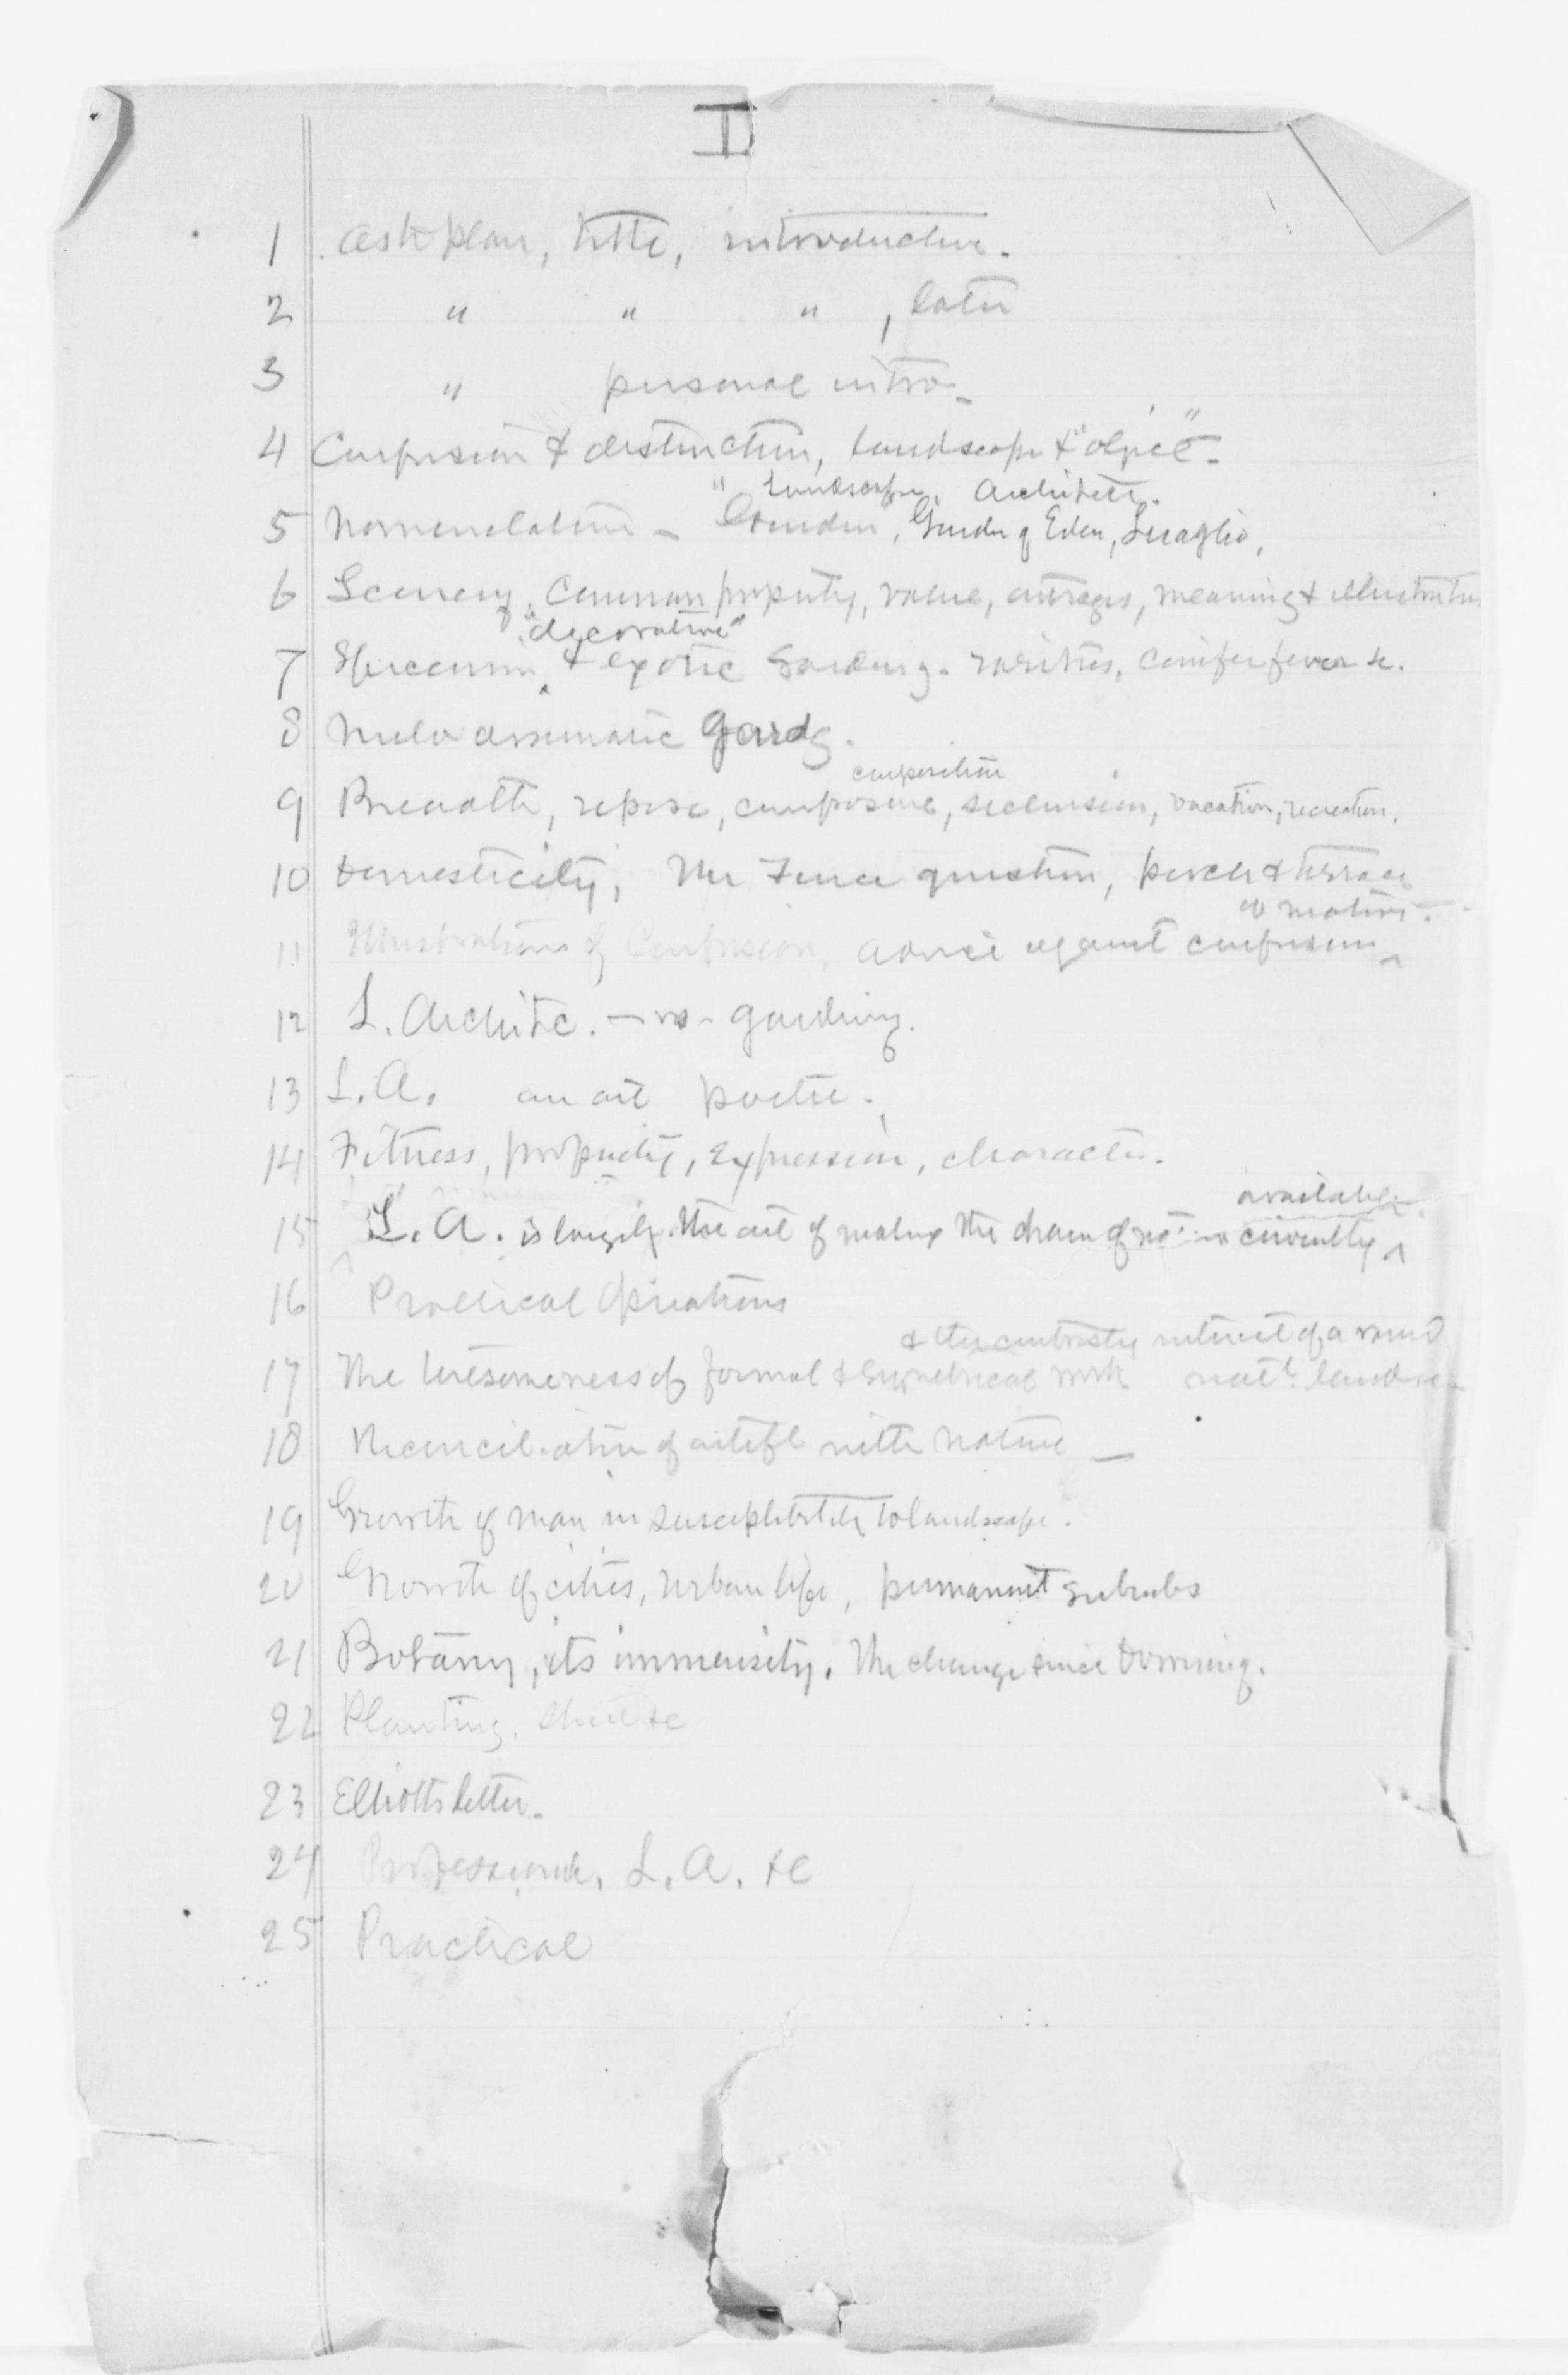 I
1 plan, title, introductive.
2 " " " , later
3 " personal intro-
4 Confusion & distinction, landscape & "object".
" landscape, Architett.
5 Nomenclature - Garden of Eden, Seraglio,
6 Scenery, Common property, value, outrages, meaning & illustration
"decorative"
7 Specimen & exotic Gardeng. rarities, conifer fever &c.
8 Melo dramatic gardg.
composition
9 Breadth, repose, composure, seclusion, vacation, recreation.
10 Domesticity, The Fence question, porch & terrace
of motives.
11 Illustrations of Confusion, advice against confusion ^
12 L. Architc. - vs - gardening.
13 L.A. an art poetic.
14 Fitness, propriety, expression, character.
available.
15 L. A. is largely the art of making the charm of ^
16 Practical Operations
& the contrasty interest of a
17 The tiresomeness of formal & symetrical work natl. landsc
18 Reconciliation of artifl with nature -
19 Growth of man in susceptibility to landscape.
20 Growth of cities, urban life, permanent suburbs
21 Botany, its immensity. The change since Downing.
22 Planting. &c
23 Elliotts letter.
24 Professional, L. A. &c
25 Practical